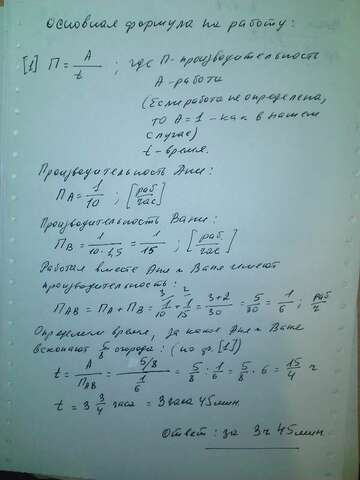 Основная формула на работу:
[1] П = A/t ; где П - производительность
A - работа
(Если работа не определена,
то A = 1 - как в нашем
случае)
t - время.
Производительность Ани:
П_A = 1/10 ; [раб/час]
Производительность Вани:
П_В = 1/(10·1,5) = 1/15 ; [раб/час]
Работая вместе Аня и Ваня имеют
производительность:
П_AB = П_A + П_B = 1/10 + 1/15 = (3+2)/30 = 5/30 = 1/6 ; раб/ч
Определим время, за какое Аня и Ваня
вскопают 5/8 огорода: (по ф. [1])
t = A/П_AB = (5/8)/(1/6) = 5/8 : 1/6 = 5/8 · 6 = 15/4 ч
t = 3 3/4 часа = 3 часа 45 мин.
Ответ: за 3ч 45 мин.